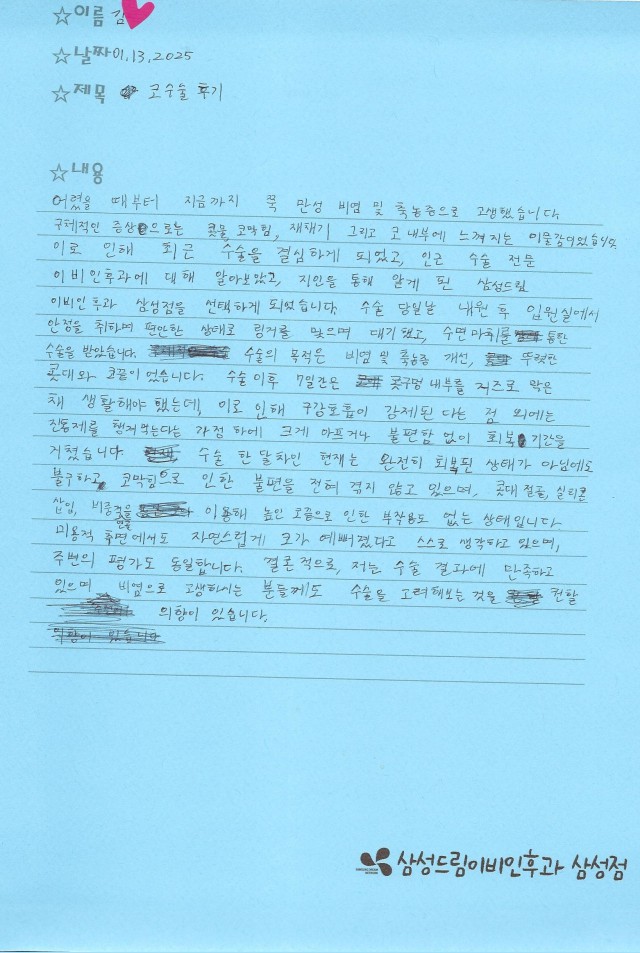 ☆이름 김
☆날짜 01.13.2025
☆제목 코수술 후기
☆내용
어렸을 때부터 지금까지 쭉 만성 비염 및 축농증으로 고생했습니다.
구체적인 증상으로는 콧물 코막힘, 재채기 그리고 코 내부에 느껴지는 이물감이었습니다.
이로 인해 최근 수술을 결심하게 되었고, 인근 수술 전문
이비인후과에 대해 알아보았고, 지인을 통해 알게 된 삼성드림
이비인후과 삼성점을 선택하게 되었습니다. 수술 당일날 내원 후 입원실에서
안정을 취하며 편안한 상태로 링거를 맞으며 대기했고, 수면 마취를 통한
수술을 받았습니다. 수술의 목적은 비염 및 축농증 개선, 뚜렷한
콧대와 코끝이었습니다. 수술 이후 7일간은 콧구멍 내부를 거즈로 막은
채 생활해야 했는데, 이로 인해 구강호흡이 강제된다는 점 외에는
진통제를 챙겨먹는다는 가정 하에 크게 아프거나 불편함 없이 회복 기간을
거쳤습니다 수술 한 달차인 현재는 완전히 회복된 상태가 아님에도
불구하고 코막힘으로 인한 불편을 전혀 겪지 않고 있으며, 콧대 절골, 실리콘
삽입, 비중격 연골을 이용해 높인 코끝으로 인한 부작용도 없는 상태입니다.
미용적 측면에서도 자연스럽게 코가 예뻐졌다고 스스로 생각하고 있으며,
주변의 평가도 동일합니다. 결론적으로, 저는 수술 결과에 만족하고
있으며 비염으로 고생하시는 분들께도 수술을 고려해보는 것을 전할
의향이 있습니다.
삼성드림이비인후과 삼성점